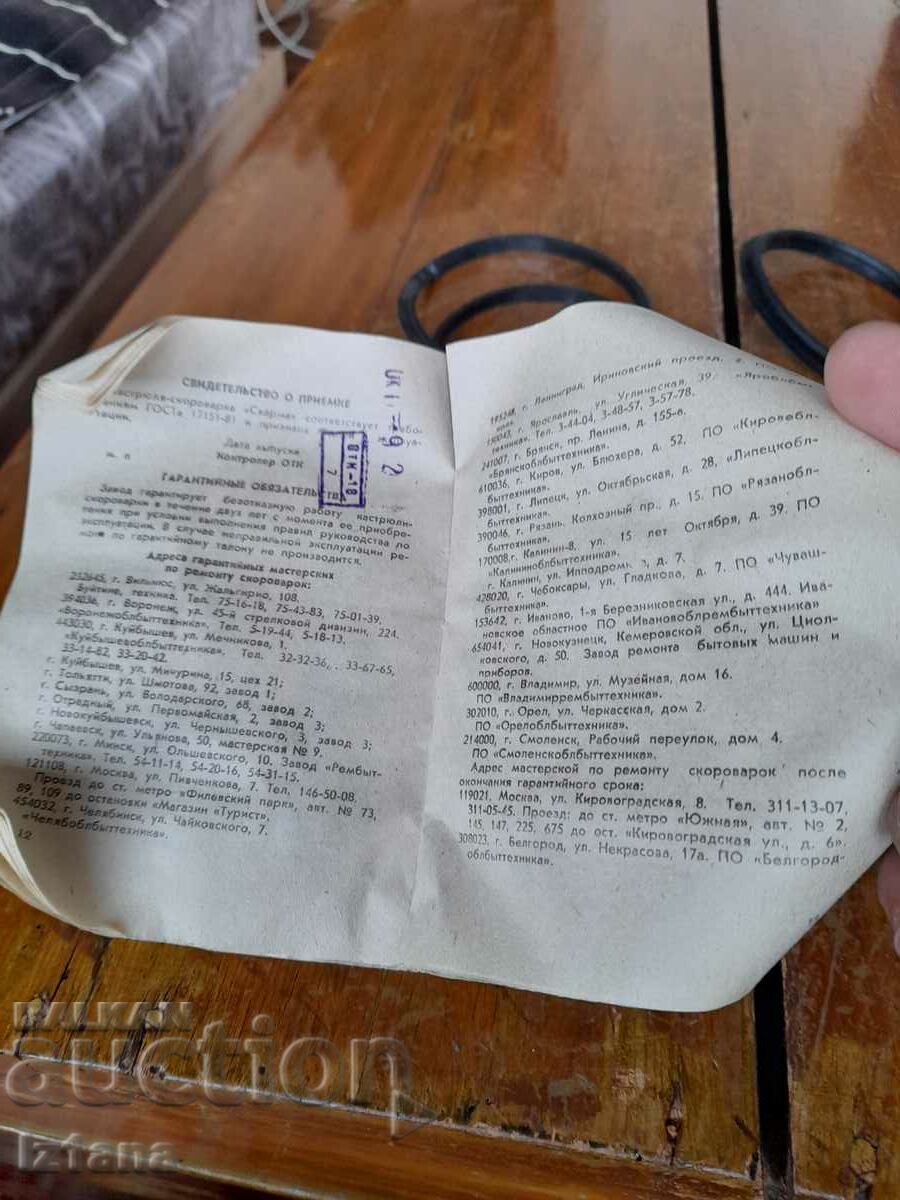 СВИДЕТЕЛЬСТВО О ПРИЕМКЕ
«Скарма» соответствует
ГОСТа 17151-81 и признана
Дата выпуска
Контролер ОТК
ОТК-18
7
ГАРАНТИЙНЫЕ ОБЯЗАТЕЛЬСТВА
Завод гарантирует безотказную работу кастрюли-
скороварки в течение двух лет с момента ее приобре-
тения при условии выполнения правил руководства по
эксплуатации. В случае неправильной эксплуатации ре-
монт по гарантийному талону не производится.
Адреса гарантийных мастерских
по ремонту скороварок:
232645, г. Вильнюс, ул. Жальгирио, 108.
Буйтине, техника. Тел. 75-16-18, 75-43-83, 75-01-39.
394036, г. Воронеж, ул. 45-й стрелковой дивизии, 224.
«Воронежоблбыттехника». Тел. 5-19-44, 5-18-13.
443030, г. Куйбышев, ул. Мечникова, 1.
«Куйбышевоблбыттехника». Тел. 32-32-36, 33-67-65,
33-14-82, 33-20-42.
г. Куйбышев, ул. Мичурина, 15, цех 21;
г. Тольятти, ул. Шмотова, 92, завод 1;
г. Сызрань, ул. Володарского, 68, завод 2;
г. Отрадный, ул. Первомайская, 2, завод 3;
г. Новокуйбышевск, ул. Чернышевского, 3, завод 3;
г. Чапаевск, ул. Ульянова, 50, мастерская № 9.
220073, г. Минск, ул. Ольшевского, 10. Завод «Рембыт-
техника». Тел. 54-11-14, 54-20-16, 54-31-15.
121108, г. Москва, ул. Пивченкова, 7. Тел. 146-50-08.
Проезд до ст. метро «Филевский парк», авт. № 73,
89, 109 до остановки «Магазин «Турист».
454032, г. Челябинск, ул. Чайковского, 7.
«Челябоблбыттехника».
12
195248, г. Ленинград, Ириновский проезд,
150043, г. Ярославль, ул. Угличская, 39. «Яроблбыт-
техника». Тел. 3-44-04, 3-48-57, 3-57-78.
241007, г. Брянск, пр. Ленина, д. 155-а.
«Брянскоблбыттехника».
610036, г. Киров, ул. Блюхера, д. 52. ПО «Кировобл-
быттехника».
398001, г. Липецк, ул. Октябрьская, д. 28, «Липецкобл-
быттехника».
390046, г. Рязань, Колхозный пр., д. 15. ПО «Рязанобл-
быттехника».
170008, г. Калинин-8, ул. 15 лет Октября, д. 39. ПО
«Калининоблбыттехника».
г. Калинин, ул. Ипподромная, д. 7.
428020, г. Чебоксары, ул. Гладкова, д. 7. ПО «Чуваш-
быттехника».
153642, г. Иваново, 1-я Березниковская ул., д. 444. Ива-
новское областное ПО «Ивановоблрембыттехника»
654041, г. Новокузнецк, Кемеровской обл., ул. Циол-
ковского, д. 50. Завод ремонта бытовых машин и
приборов.
600000, г. Владимир, ул. Музейная, дом 16.
ПО «Владимиррембыттехника».
302010, г. Орел, ул. Черкасская, дом 2.
ПО «Орелоблбыттехника».
214000, г. Смоленск, Рабочий переулок, дом 4.
ПО «Смоленскоблбыттехника».
Адрес мастерской по ремонту скороварок после
окончания гарантийного срока:
119021, Москва, ул. Кировоградская, 8. Тел. 311-13-07,
311-05-45. Проезд: до ст. метро «Южная», авт. № 2,
145, 147, 225, 675 до ост. «Кировоградская ул., д. 6».
308023, г. Белгород, ул. Некрасова, 17а. ПО «Белгород-
облбыттехника».
BALKAN
auction
Iztana